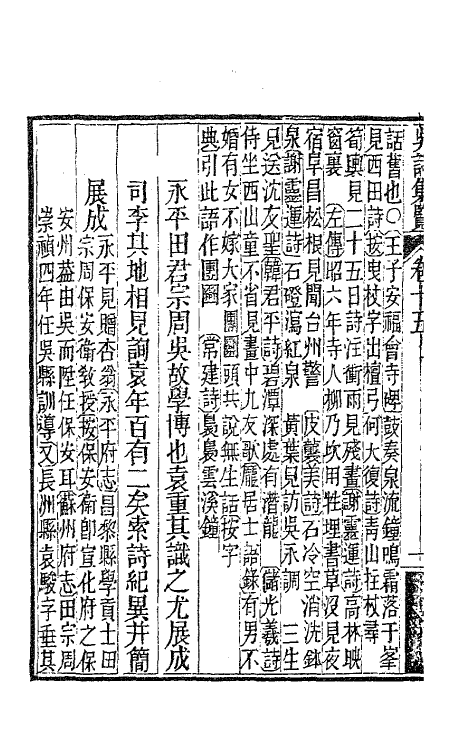 吳詩集覽 卷十五
話舊也〇王子安福會寺碑鼓奏泉流鐘鳴霜落于峯
見西田詩按曳杖字出檀弓何大復詩青山拄杖尋
荀輿見二十五日詩注衝雨見殘畫謝靈運詩高林映
窗裏 左傳昭六年寺人柳乃坎用牲埋書草沒見夜
宿阜昌松根見聞台州警 皮襲美詩石冷空消洗鉢
泉謝靈運詩石磴瀉紅泉 黃葉見訪吳永調 三生
見送沈友聖韓君平詩碧潭深處有潛龍 儲光羲詩
侍坐西山童不省見畫中九友歌龐居士語錄有男不
婚有女不嫁大家團圞頭共說無生話按字
典引此語作團圞 常建詩裊裊雲溪鐘
永平田君宗周吳故學博也袁重其識之尤展成
司李其地相見詢袁年百有二矣索詩紀異并簡
展成 永平見贈杏翁永平府志昌黎縣學貢士田
宗周保安衛教授按保安衛卽宣化府之保
安州葢由吳而陞任保安耳蘇州府志田宗周
崇禎四年任吳縣訓導又長洲縣袁駿字重其